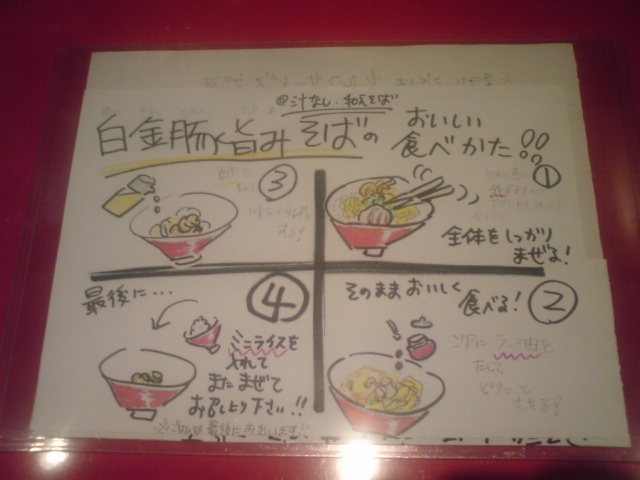 @汁なし・和えそば
白金豚旨みそばの
おいしい
食べかた!!
①
全体をしっかり
まぜる!
②
そのままおいしく
食べる!
次にラー油を
たして
ピリッと
させる!
③
酢を
④
最後に…
ミニライスを
入れて
またまぜて
お召し上り下さい!!
※ごはんは最後にお出します!!